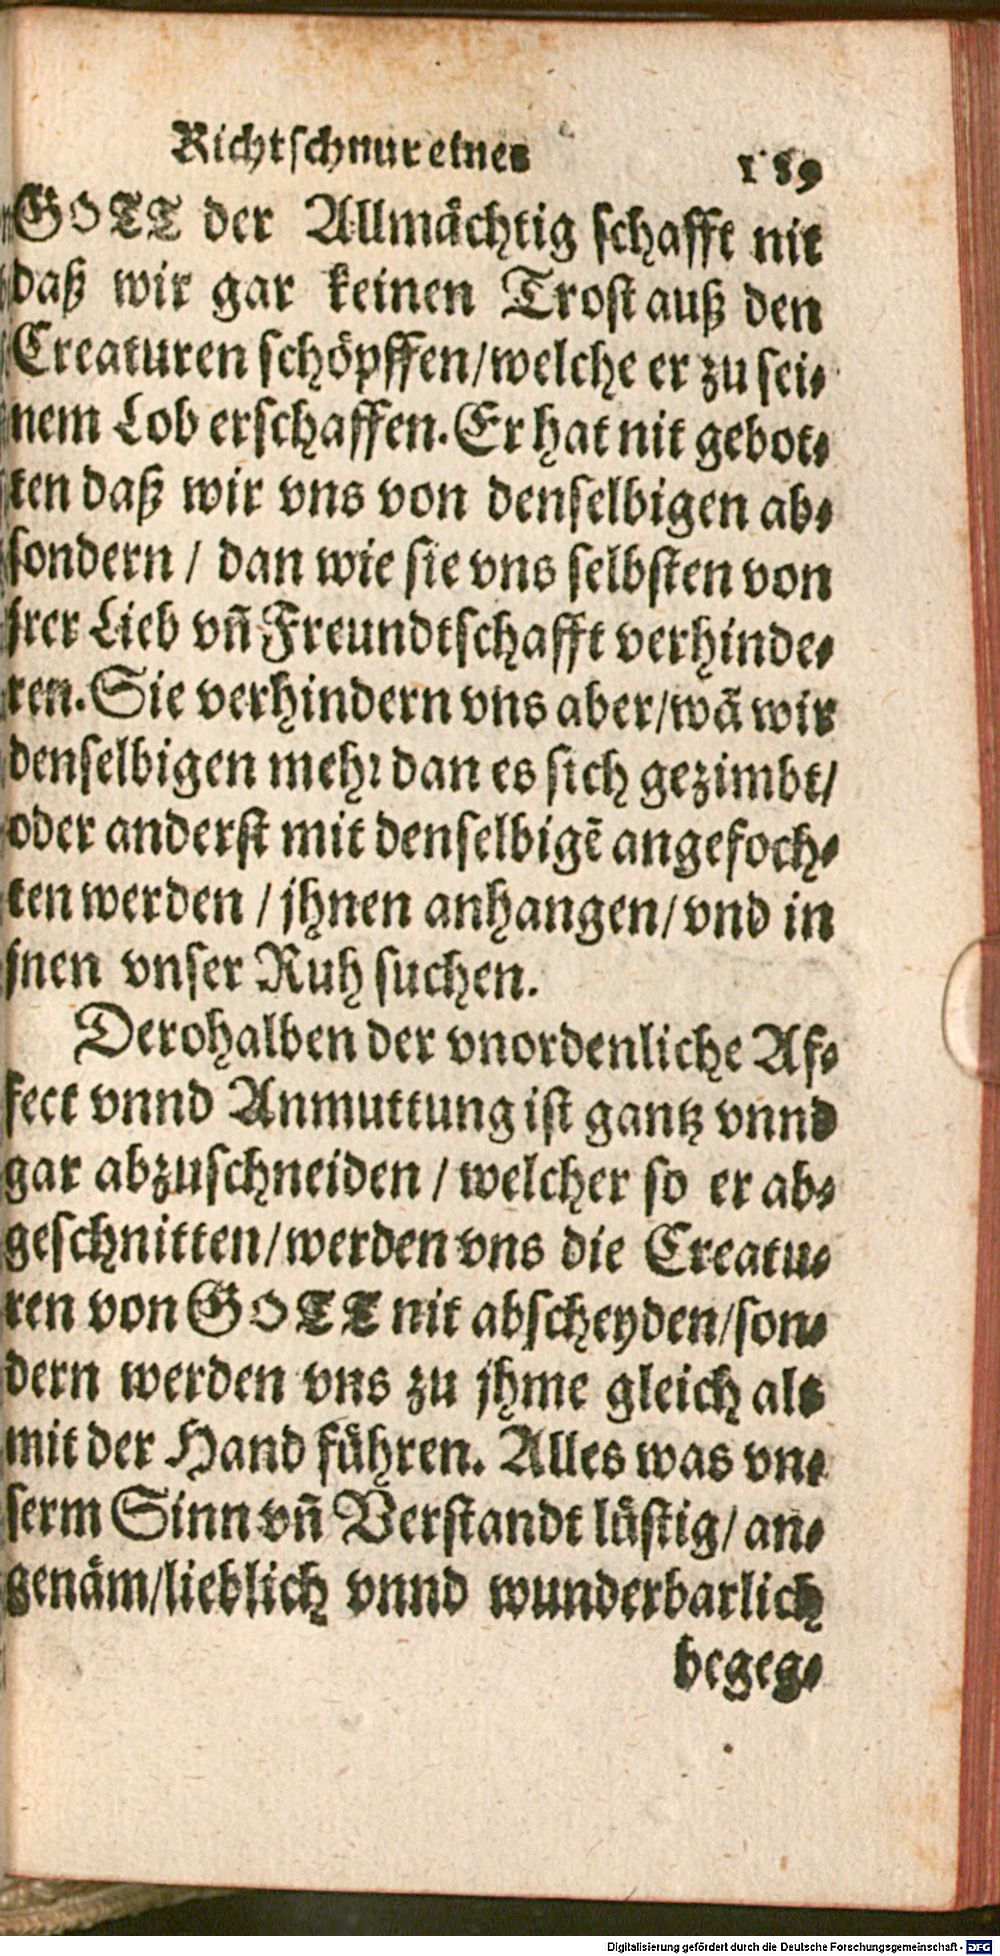 Richtschnur eines 189
GOTT der Allmächtig schafft nit
daß wir gar keinen Trost auß den
Creaturen schöpffen/welche er zu sei-
nem Lob erschaffen. Er hat nit gebot-
ten daß wir vns von denselbigen ab-
sondern / dan wie sie vns selbsten von
jrer Lieb vñ Freundtschafft verhinde-
ren. Sie verhindern vns aber/wã wir
denselbigen mehr dan es sich gezimbt/
oder anderst mit denselbigẽ angefoch-
ten werden / jhnen anhangen/vnd in
jnen vnser Ruh suchen.
Derohalben der vnordenliche Af-
fect vnnd Anmuttung ist gantz vnnd
gar abzuschneiden / welcher so er ab-
geschnitten/werden vns die Creatu-
ren von GOTT nit abscheyden/son-
dern werden vns zu jhme gleich als
mit der Hand führen. Alles was vn-
serm Sinn vñ Verstandt lüstig/ an-
genäm/lieblich vnnd wunderbarlich
begeg-
Digitalisierung gefördert durch die Deutsche Forschungsgemeinschaft - DFG